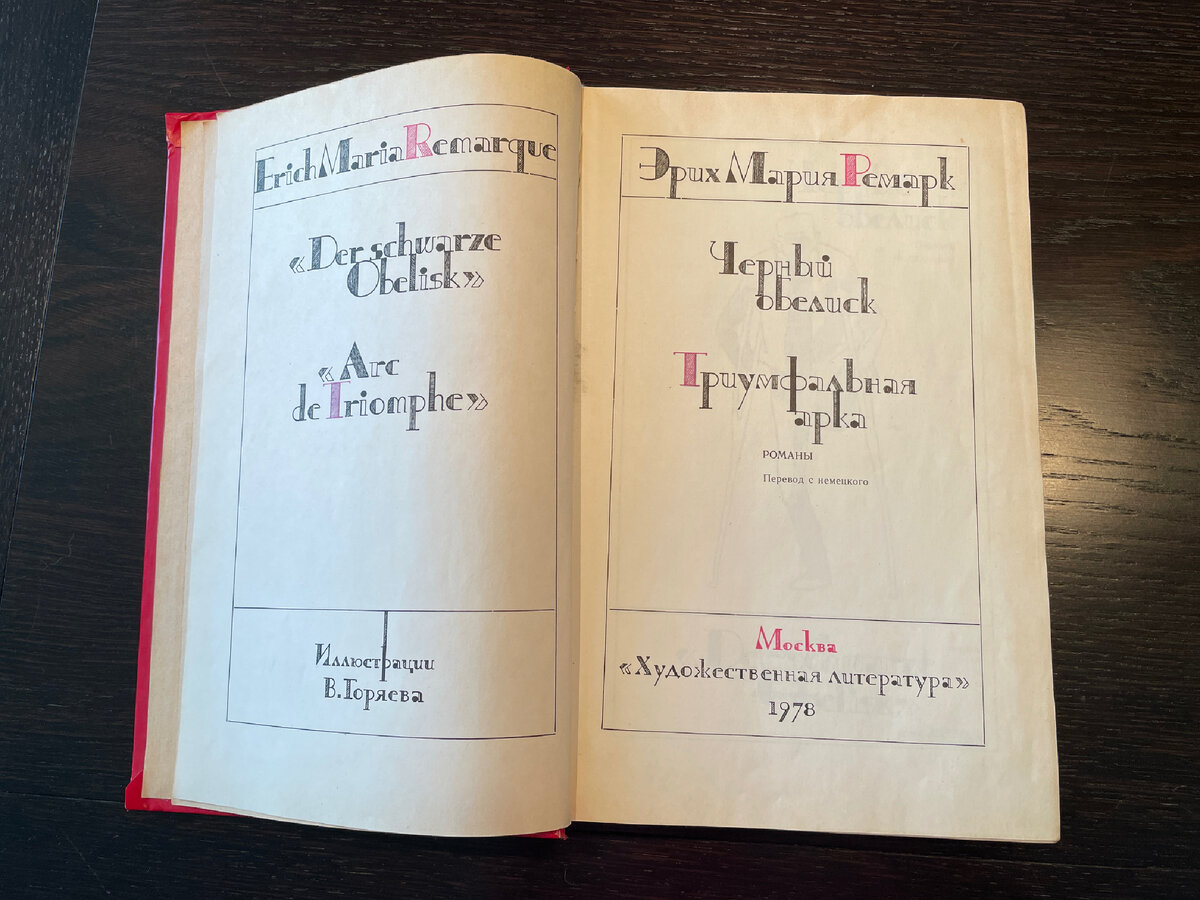 Erich Maria Remarque
«Der schwarze
Obelisk»
«Arc
de Triomphe»
Иллюстрации
В. Горяева
Эрих Мария Ремарк
Черный
обелиск
Триумфальная
арка
РОМАНЫ
Перевод с немецкого
Москва
«Художественная литература»
1978